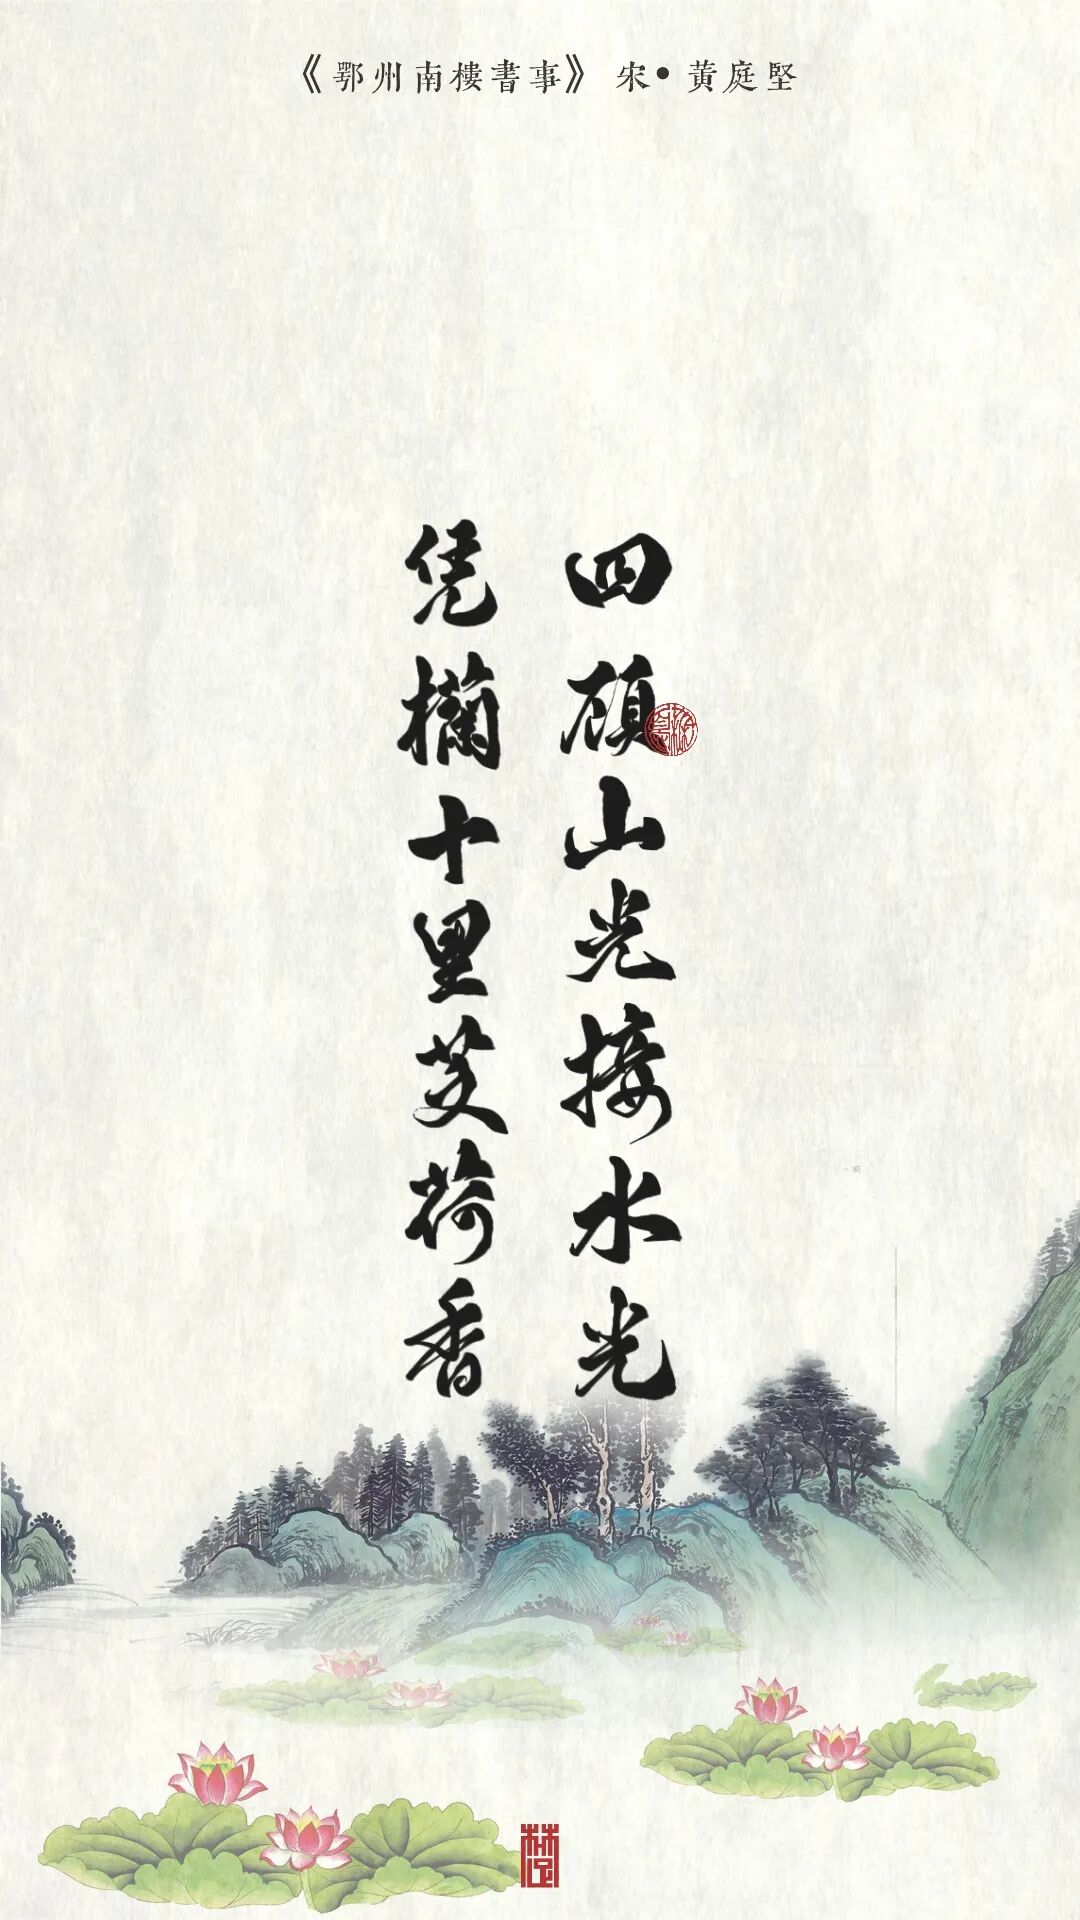 《鄂州南樓書事》 宋•黄庭堅
四顾山光接水光
凭櫊十里芰荷香